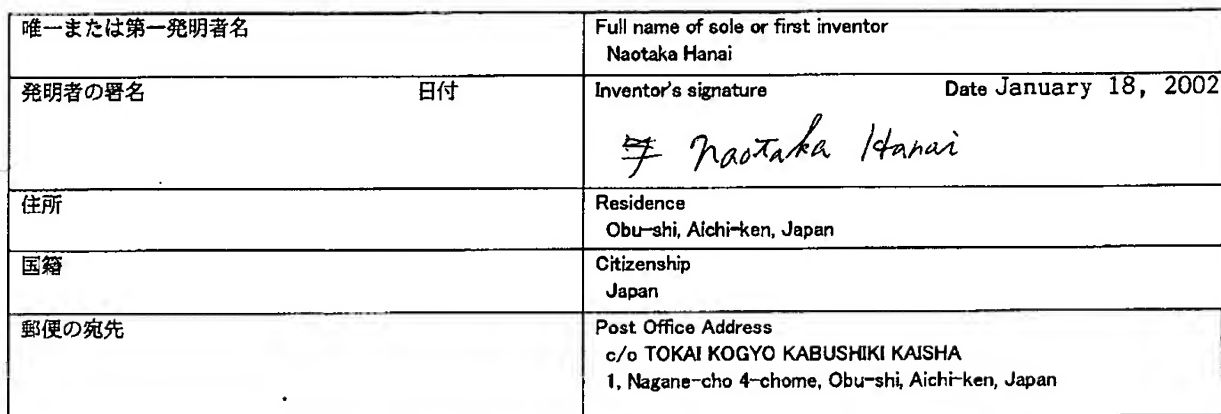 唯一または第一発明者名
Full name of sole or first inventor
Naotaka Hanai
発明者の署名 日付
Inventor's signature Date January 18, 2002
Naotaka Hanai
住所
Residence
Obu-shi, Aichi-ken, Japan
国籍
Citizenship
Japan
郵便の宛先
Post Office Address
c/o TOKAI KOGYO KABUSHIKI KAISHA
1, Nagane-cho 4-chome, Obu-shi, Aichi-ken, Japan